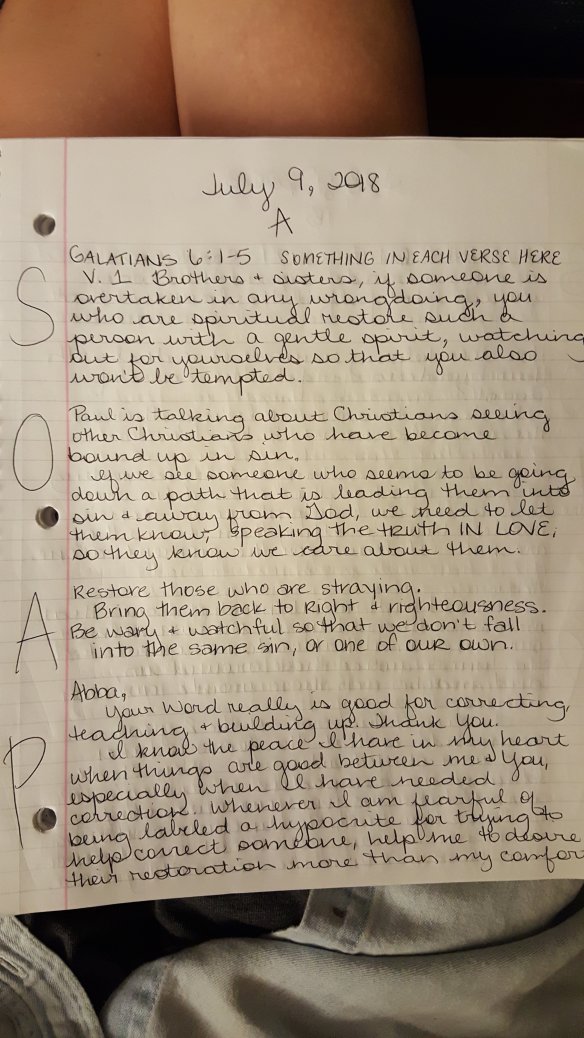 July 9, 2018
A
GALATIANS 6:1-5 SOMETHING IN EACH VERSE HERE
S
V. 1 Brothers + sisters, if someone is
overtaken in any wrongdoing, you
who are spiritual restore such a
person with a gentle spirit, watching
out for yourselves so that you also
won't be tempted.
O
Paul is talking about Christians seeing
other Christians who have become
bound up in sin.
If we see someone who seems to be going
down a path that is leading them into
sin & away from God, we need to let
them know, speaking the truth IN LOVE,
so they know we care about them.
A
Restore those who are straying.
Bring them back to Right & righteousness.
Be wary & watchful so that we don't fall
into the same sin, or one of our own.
P
Abba,
Your Word really is good for correcting,
teaching & building up. Thank You.
I know the peace I have in my heart
when things are good between me & You,
especially when I have needed
correction. Whenever I am fearful of
being labeled a hypocrite for trying to
help correct someone, help me to desire
their restoration more than my comfor